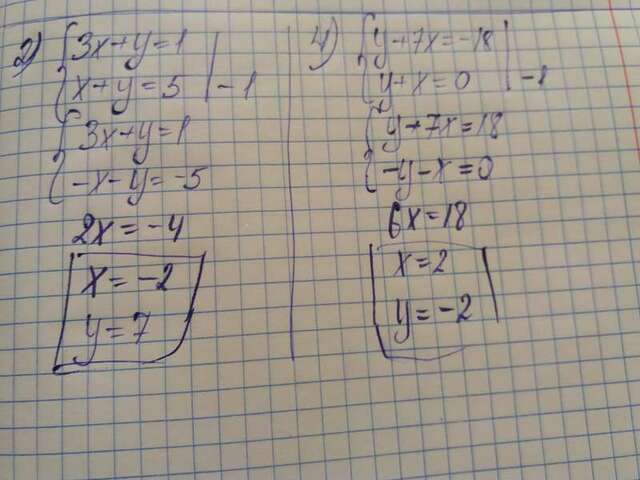 2) { 3x+y=1
{ x+y=5 | -1
{ 3x+y=1
{ -x-y=-5
2x=-4
x=-2
y=7
4) { y+7x=-18 |
{ y+x=0 | -1
{ y+7x=18
{ -y-x=0
6x=18
x=2
y=-2